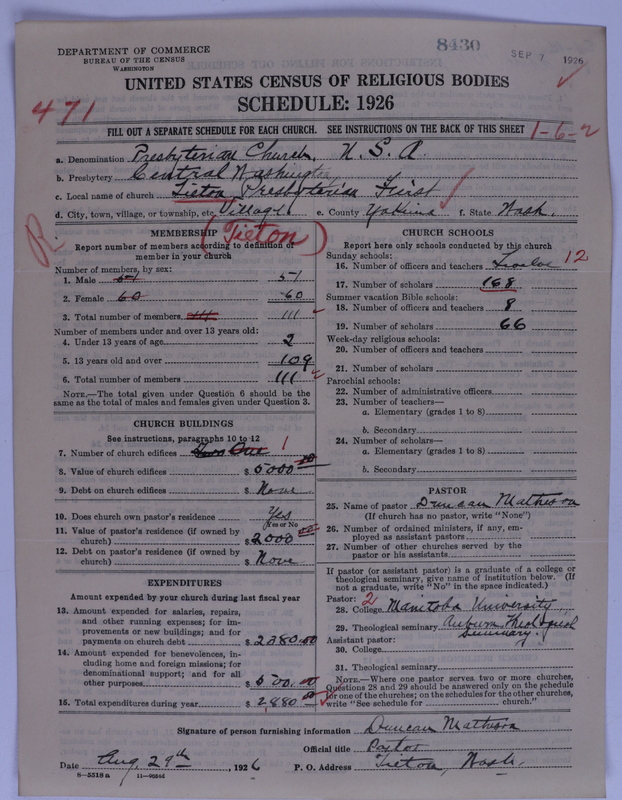 DEPARTMENT OF COMMERCE
BUREAU OF THE CENSUS
WASHINGTON
8430
SEP 7 1926
UNITED STATES CENSUS OF RELIGIOUS BODIES
SCHEDULE: 1926
471
FILL OUT A SEPARATE SCHEDULE FOR EACH CHURCH. SEE INSTRUCTIONS ON THE BACK OF THIS SHEET
1-6-2
a. Denomination Presbyterian Church, U. S. A.
b. Presbytery Central Washington
c. Local name of church Tieton Presbyterian First
d. City, town, village, or township, etc. Village e. County Yakima f. State Wash.
(Tieton)
MEMBERSHIP
Report number of members according to definition of
member in your church
Number of members, by sex:
1. Male 51 51
2. Female 60 60
3. Total number of members 111 111
Number of members under and over 13 years old:
4. Under 13 years of age 2
5. 13 years old and over 109
6. Total number of members 111
NOTE.—The total given under Question 6 should be the
same as the total of males and females given under Question 3.
CHURCH BUILDINGS
See instructions, paragraphs 10 to 12
7. Number of church edifices One 1
8. Value of church edifices $ 5000 00
9. Debt on church edifices $ None
10. Does church own pastor's residence Yes
(Yes or No)
11. Value of pastor's residence (if owned by
church) $ 2000 00
12. Debt on pastor's residence (if owned by
church) $ None
EXPENDITURES
Amount expended by your church during last fiscal year
13. Amount expended for salaries, repairs,
and other running expenses; for im-
provements or new buildings; and for
payments on church debt $ 2380.00
14. Amount expended for benevolences, in-
cluding home and foreign missions; for
denominational support; and for all
other purposes $ 500.00
15. Total expenditures during year $ 2880 00
CHURCH SCHOOLS
Report here only schools conducted by this church
Sunday schools:
16. Number of officers and teachers Twelve 12
17. Number of scholars 168
Summer vacation Bible schools:
18. Number of officers and teachers 8
19. Number of scholars 66
Week-day religious schools:
20. Number of officers and teachers
21. Number of scholars
Parochial schools:
22. Number of administrative officers
23. Number of teachers—
a. Elementary (grades 1 to 8)
b. Secondary
24. Number of scholars—
a. Elementary (grades 1 to 8)
b. Secondary
PASTOR
25. Name of pastor Duncan Matheson
(If church has no pastor, write "None")
26. Number of ordained ministers, if any, em-
ployed as assistant pastors
27. Number of other churches served by the
pastor or his assistants
If pastor (or assistant pastor) is a graduate of a college or
theological seminary, give name of institution below. (If
not a graduate, write "No" in the space indicated.)
Pastor: 2
28. College Manitoba University
29. Theological seminary Auburn Theological
Seminary.
Assistant pastor:
30. College
31. Theological seminary
NOTE.—Where one pastor serves two or more churches,
Questions 28 and 29 should be answered only on the schedule
for one of the churches; on the schedules for the other churches,
write "See schedule for church."
Signature of person furnishing information Duncan Matheson
Official title Pastor
Date Aug. 29th, 1926 P. O. Address Tieton, Wash.
8—5518a 11—9664d